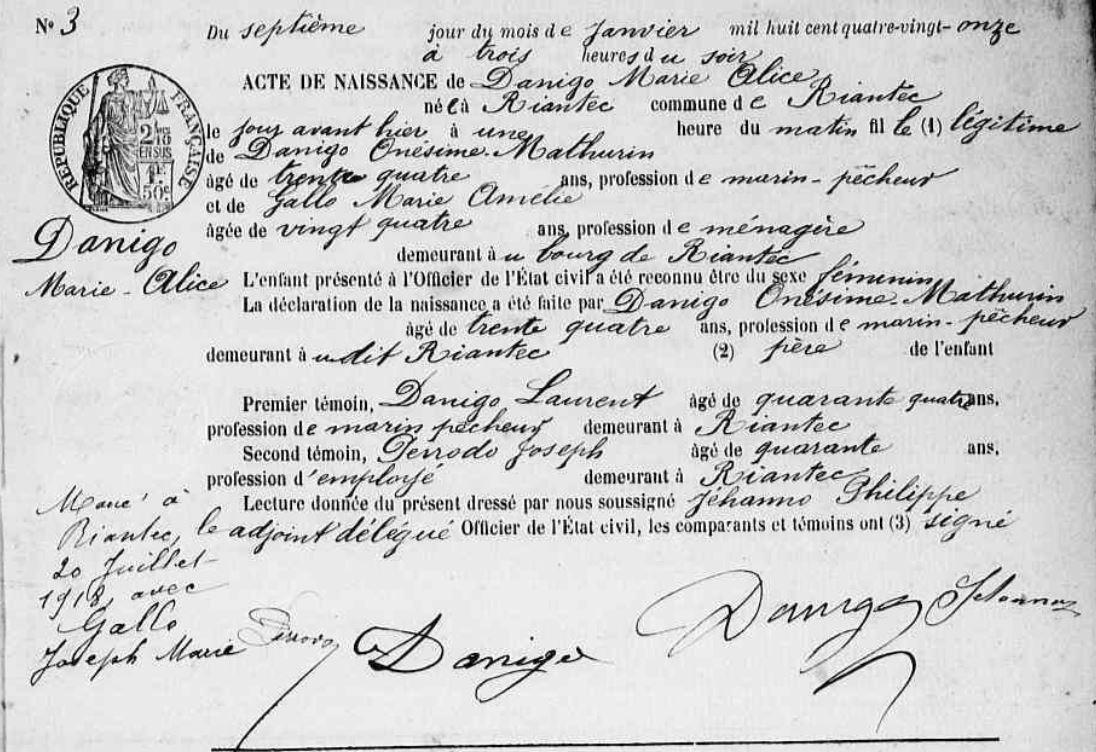 N° 3
Du septième jour du mois de Janvier mil huit cent quatre-vingt-onze
à trois heures du soir
ACTE DE NAISSANCE de Danigo Marie Alice
née à Riantec commune de Riantec
le jour avant hier à une heure du matin fille (1) légitime
de Danigo Onésime-Mathurin
âgé de trente quatre ans, profession de marin-pêcheur
et de Gallo Marie Amélie
âgée de vingt quatre ans, profession de ménagère
demeurant au bourg de Riantec
L'enfant présenté à l'Officier de l'État civil a été reconnu être du sexe féminin
La déclaration de la naissance a été faite par Danigo Onésime-Mathurin
âgé de trente quatre ans, profession de marin-pêcheur
demeurant audit Riantec (2) père de l'enfant
Premier témoin, Danigo Laurent âgé de quarante quatre ans,
profession de marin pêcheur demeurant à Riantec
Second témoin, Perrodo Joseph âgé de quarante ans,
profession d'employé demeurant à Riantec
Lecture donnée du présent dressé par nous soussigné Jéhanno Philippe
le adjoint délégué Officier de l'État civil, les comparants et témoins ont (3) signé
RÉPUBLIQUE FRANÇAISE
EN SUS
50c
Danigo
Marie-Alice
Marié à
Riantec, le
20 Juillet
1918, avec
Gallo
Joseph Marie
Danigo
Danigo